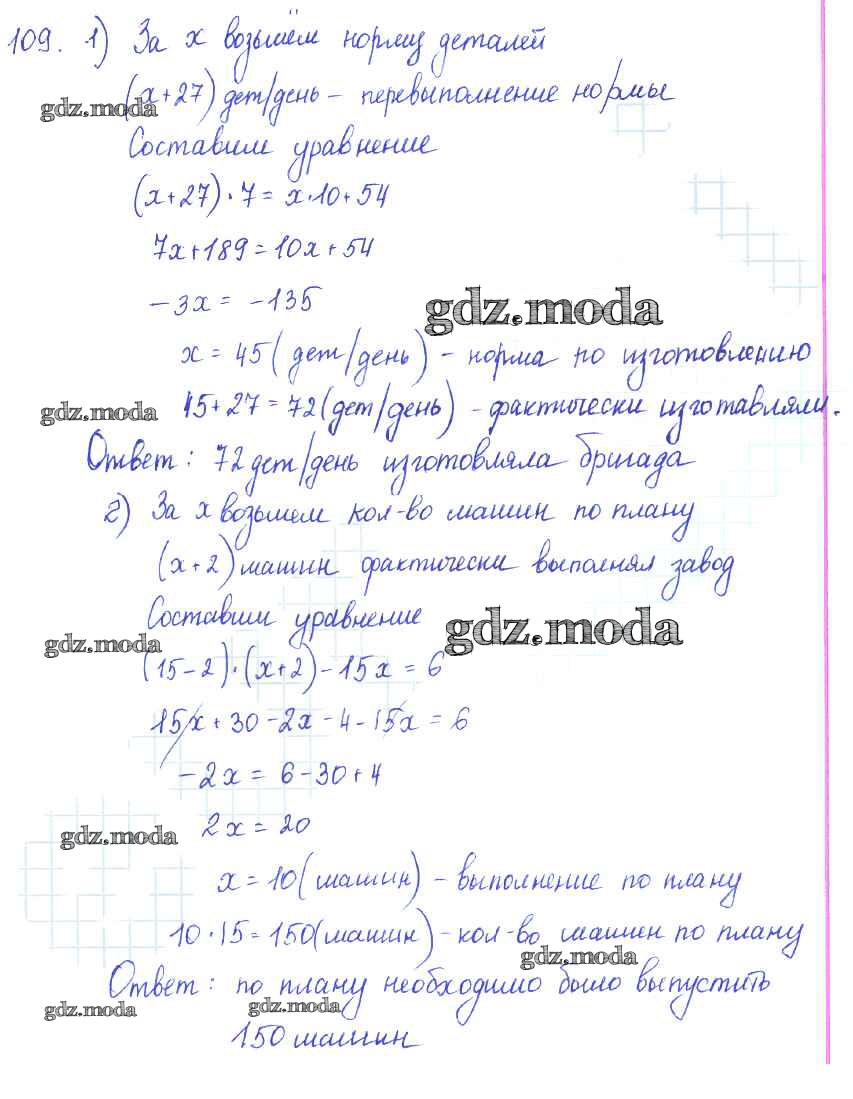 109. 1) За х возьмём норму деталей
(х+27) дет/день – перевыполнение нормы
gdz.moda
Составим уравнение
(х+27)·7=х·10+54
7х+189=10х+54
-3х = -135
gdz.moda
х = 45 (дет/день) - норма по изготовлению
gdz.moda
45+27=72 (дет/день) - фактически изготавляли.
Ответ: 72 дет/день изготовляла бригада
2) За х возьмем кол-во машин по плану
(х+2) машин фактически выполнял завод
Составим уравнение
gdz.moda
gdz.moda
(15-2)·(х+2)-15х = 6
15х+30-2х-4-15х = 6
-2х = 6-30+4
gdz.moda
2х = 20
х = 10 (машин) - выполнение по плану
10·15=150 (машин) - кол-во машин по плану
gdz.moda
Ответ: по плану необходимо было выпустить
gdz.moda
gdz.moda
150 машин